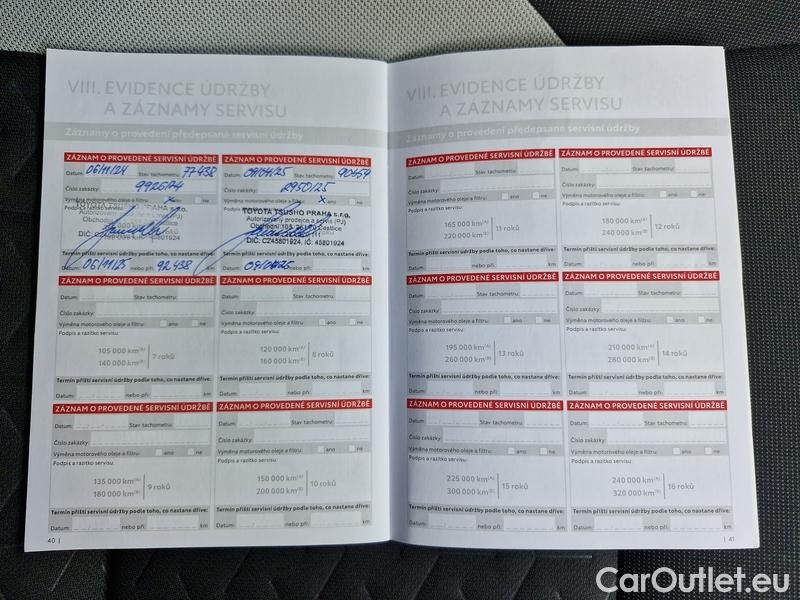 VIII. EVIDENCE ÚDRŽBY
A ZÁZNAMY SERVISU
Záznamy o provedení předepsané servisní údržby
ZÁZNAM O PROVEDENÉ SERVISNÍ ÚDRŽBĚ
Datum: 06/11/24 Stav tachometru: 77438
Číslo zakázky: 9926/24
Výměna motorového oleje a filtru: x ne
Podpis a
Autorizovaný
Obchodní
DIČ:
45801924
Termín příští servisní údržby podle toho, co nastane dříve:
06/11/25 nebo při: 92438
ZÁZNAM O PROVEDENÉ SERVISNÍ ÚDRŽBĚ
Datum: Stav tachometru:
Číslo zakázky: 2950/25
Výměna motorového oleje a filtru: x ano ne
Podpis a
TOYOTA TSUSHO PRAHA s.r.o.
Autorizovaný prodejce a servis (PJ)
Obchodní 105, 251 01 Čestlice
DIČ: CZ45801924, IČ: 45801924
Termín příští servisní údržby podle toho, co nastane dříve:
Datum: nebo při: km
ZÁZNAM O PROVEDENÉ SERVISNÍ ÚDRŽBĚ
Datum: Stav tachometru:
Číslo zakázky:
Výměna motorového oleje a filtru: ano ne
Podpis a razítko servisu:
105 000 km(A)
140 000 km(B)
7 roků
Termín příští servisní údržby podle toho, co nastane dříve:
Datum: nebo při: km
ZÁZNAM O PROVEDENÉ SERVISNÍ ÚDRŽBĚ
Datum: Stav tachometru:
Číslo zakázky:
Výměna motorového oleje a filtru: ano ne
Podpis a razítko servisu:
120 000 km(A)
160 000 km(B)
8 roků
Termín příští servisní údržby podle toho, co nastane dříve:
Datum: nebo při: km
ZÁZNAM O PROVEDENÉ SERVISNÍ ÚDRŽBĚ
Datum: Stav tachometru:
Číslo zakázky:
Výměna motorového oleje a filtru: ano ne
Podpis a razítko servisu:
135 000 km(A)
180 000 km(B)
9 roků
Termín příští servisní údržby podle toho, co nastane dříve:
Datum: nebo při: km
ZÁZNAM O PROVEDENÉ SERVISNÍ ÚDRŽBĚ
Datum: Stav tachometru:
Číslo zakázky:
Výměna motorového oleje a filtru: ano ne
Podpis a razítko servisu:
150 000 km(A)
200 000 km(B)
10 roků
Termín příští servisní údržby podle toho, co nastane dříve:
Datum: nebo při: km
40 |
VIII. EVIDENCE ÚDRŽBY
A ZÁZNAMY SERVISU
Záznamy o provedení předepsané servisní údržby
ZÁZNAM O PROVEDENÉ SERVISNÍ ÚDRŽBĚ
Datum: Stav tachometru:
Číslo zakázky:
Výměna motorového oleje a filtru: ano ne
Podpis a razítko servisu:
165 000 km(A)
220 000 km(B)
11 roků
Termín příští servisní údržby podle toho, co nastane dříve:
Datum: nebo při: km
ZÁZNAM O PROVEDENÉ SERVISNÍ ÚDRŽBĚ
Datum: Stav tachometru:
Číslo zakázky:
Výměna motorového oleje a filtru: ano ne
Podpis a razítko servisu:
180 000 km(A)
240 000 km(B)
12 roků
Termín příští servisní údržby podle toho, co nastane dříve:
Datum: nebo při: km
ZÁZNAM O PROVEDENÉ SERVISNÍ ÚDRŽBĚ
Datum: Stav tachometru:
Číslo zakázky:
Výměna motorového oleje a filtru: ano ne
Podpis a razítko servisu:
195 000 km(A)
260 000 km(B)
13 roků
Termín příští servisní údržby podle toho, co nastane dříve:
Datum: nebo při: km
ZÁZNAM O PROVEDENÉ SERVISNÍ ÚDRŽBĚ
Datum: Stav tachometru:
Číslo zakázky:
Výměna motorového oleje a filtru: ano ne
Podpis a razítko servisu:
210 000 km(A)
280 000 km(B)
14 roků
Termín příští servisní údržby podle toho, co nastane dříve:
Datum: nebo při: km
ZÁZNAM O PROVEDENÉ SERVISNÍ ÚDRŽBĚ
Datum: Stav tachometru:
Číslo zakázky:
Výměna motorového oleje a filtru: ano ne
Podpis a razítko servisu:
225 000 km(A)
300 000 km(B)
15 roků
Termín příští servisní údržby podle toho, co nastane dříve:
Datum: nebo při: km
ZÁZNAM O PROVEDENÉ SERVISNÍ ÚDRŽBĚ
Datum: Stav tachometru:
Číslo zakázky:
Výměna motorového oleje a filtru: ano ne
Podpis a razítko servisu:
240 000 km(A)
320 000 km(B)
16 roků
Termín příští servisní údržby podle toho, co nastane dříve:
Datum: nebo při: km
| 41
CarOutlet.eu